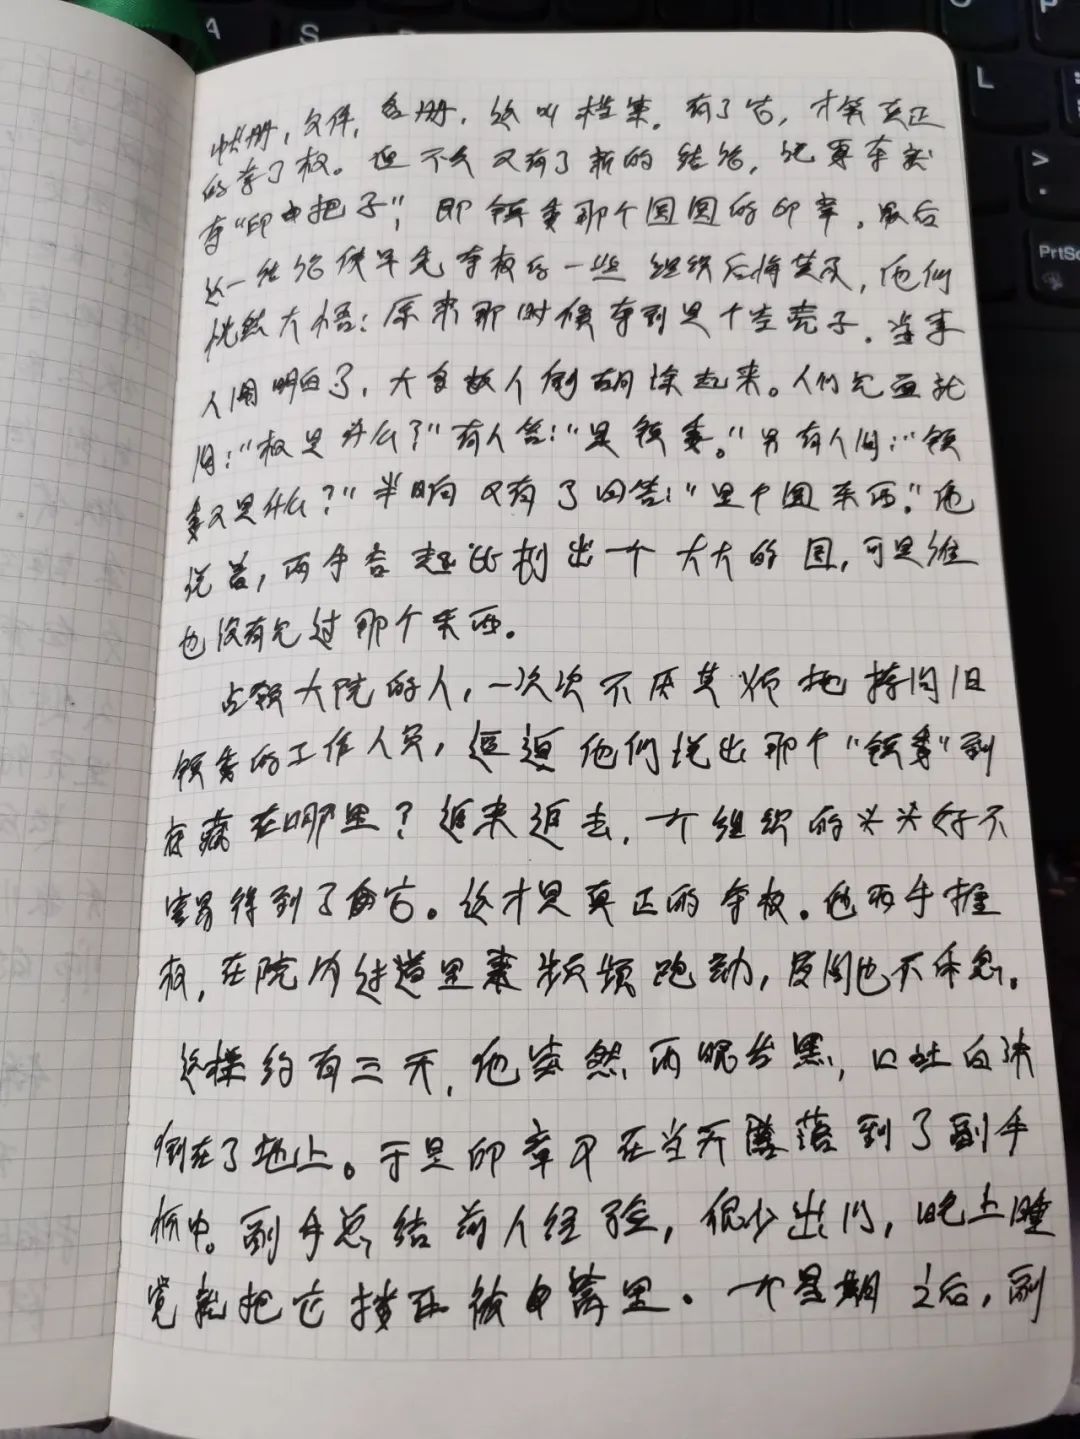 帐册，文件，名册，这叫档案。有了它，才算真正
的夺了权。但不久又有了新的结论，说要夺实
夺“印把子”，即领委那个圆圆的印章。最后
这一结论使早先夺权的一些组织后悔莫及，他们
恍然大悟：原来那时候夺到是个空壳子。当事
人闹明白了，大多数人倒胡涂起来。人们见面就
问：“权是什么？”有人答：“是领委。”另有人问：“领
委又是什么？”半晌又有了回答：“是个圆东西。”他
说着，两手合起比划出一个大大的圆，可是谁
也没有见过那个东西。
占领大院的人，一次次不厌其烦地拷问旧
领委的工作人员，逼迫他们说出那个“领委”到
底藏在哪里？追来追去，一个组织的头头好不
容易得到了它。这才是真正的夺权。他两手握
权，在院内过道里来频频跑动，夜间也不休息。
这样约有三天，他突然两眼发黑，口吐白沫
倒在了地上。于是印章又在当天落到了副手
手中。副手总结前人经验，很少出门，晚上睡
觉就把它搂在被窝里。一个星期之后，副